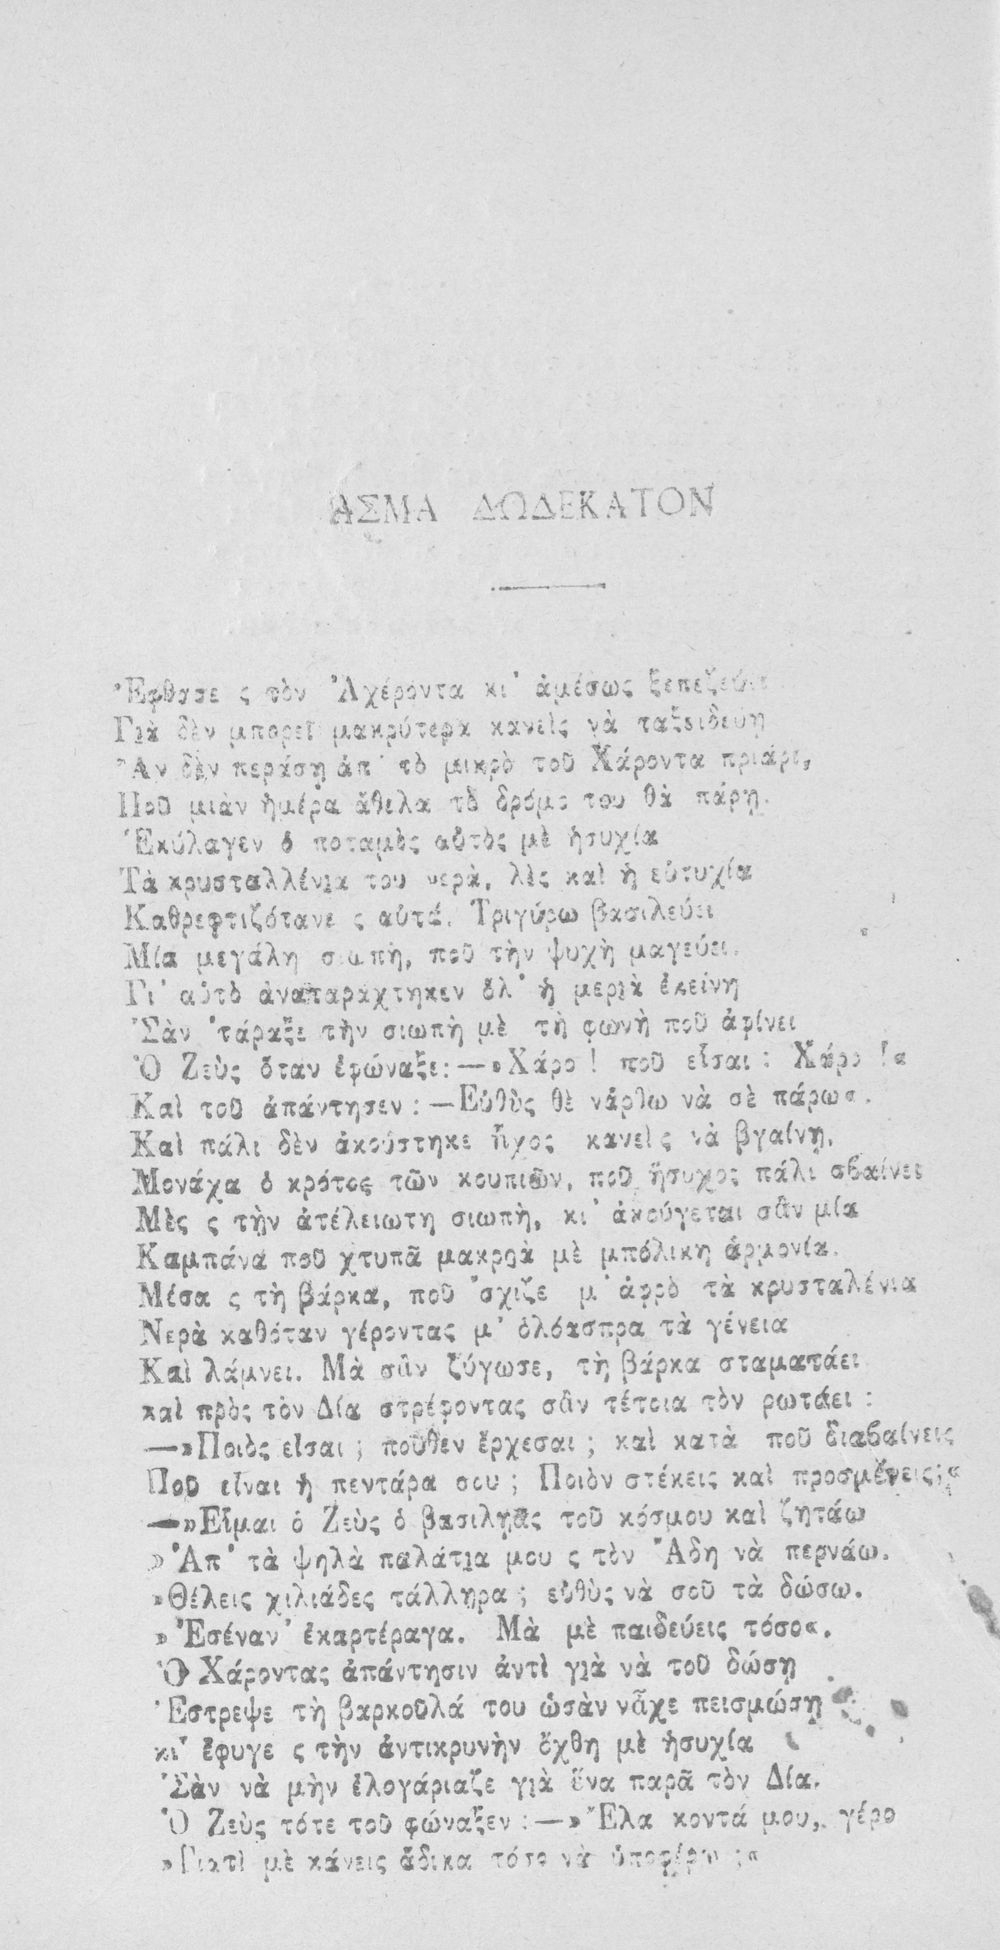 ΑΣΜΑ ΔΩΔΕΚΑΤΟΝ
Ἔφθασε ς τὸν Ἀχέροντα κι' ἀμέσως ξεπεζεύει
Γιὰ δὲν μπορεῖ μακρύτερα κανεὶς νὰ ταξειδεύη
Ἂν δὲν περάση ἀπ' τὸ μικρὸ τοῦ Χάροντα πριάρι,
Ποῦ μιὰν ἡμέρα ἄθελα τὸ δρόμο του θὰ πάρη.
Ἐκύλαγεν ὁ ποταμὸς αὐτὸς μὲ ἡσυχία
Τὰ κρυσταλλένια του νερὰ, λὲς καὶ ἡ εὐτυχία
Καθρεφτιζότανε ς αὐτά. Τριγύρω βασιλεύει
Μία μεγάλη σιωπὴ, ποῦ τὴν ψυχὴ μαγεύει.
Γι' αὐτὸ ἀναταράχτηκεν ὅλ' ἡ μεριὰ ἐκείνη
Σὰν 'τάραξε τὴν σιωπὴ μὲ τὴ φωνὴ ποῦ ἀφίνει
Ὁ Ζεὺς ὅταν ἐφώναξε: —»Χάρο ! ποῦ εἶσαι : Χάρο !«
Καὶ τοῦ ἀπάντησεν : —Εὐθὺς θὲ νἄρθω νὰ σὲ πάρω«.
Καὶ πάλι δὲν ἀκούστηκε ἦχος κανεὶς νὰ βγαίνη,
Μονάχα ὁ κρότος τῶν κουπιῶν, ποῦ ἥσυχος πάλι σβαίνει
Μὲς ς τὴν ἀτέλειωτη σιωπὴ, κι' ἀκούγεται σὰν μία
Καμπάνα ποῦ χτυπᾶ μακρρὰ μὲ μπόλικη ἁρμονία.
Μέσα ς τὴ βάρκα, ποῦ 'σχιζε μ' ἀφρὸ τὰ κρυσταλένια
Νερὰ καθόταν γέροντας μ' ὁλόασπρα τὰ γένεια
Καὶ λάμνει. Μὰ σὰν ζύγωσε, τὴ βάρκα σταματάει
καὶ πρὸς τὸν Δία στρέφοντας σὰν τέτοια τὸν ρωτάει :
—»Ποιὸς εἶσαι ; ποῦθεν ἔρχεσαι ; καὶ κατὰ ποῦ διαβαίνεις
Ποῦ εἶναι ἡ πεντάρα σου ; Ποιὸν στέκεις καὶ προσμένεις;«
—»Εἶμαι ὁ Ζεὺς ὁ βασιληᾶς τοῦ κόσμου καὶ ζητάω
»Ἀπ' τὰ ψηλὰ παλάτια μου ς τὸν Ἄδη νὰ περνάω.
»Θέλεις χιλιάδες τάλληρα ; εὐθὺς νὰ σοῦ τὰ δώσω.
»Ἐσέναν' ἐκαρτέραγα. Μὰ μὲ παιδεύεις τόσο«.
Ὁ Χάροντας ἀπάντησιν ἀντὶ γιὰ νὰ τοῦ δώση
Ἔστρεψε τὴ βαρκοῦλά του ὡσὰν νἆχε πεισμώση
κι' ἔφυγε ς τὴν ἀντικρυνὴν ὄχθη μὲ ἡσυχία
Σὰν νὰ μὴν ἐλογάριαζε γιὰ ἕνα παρᾶ τὸν Δία.
Ὁ Ζεὺς τότε τοῦ φώναξεν : —»Ἔλα κοντά μου, γέρο
»Γιατὶ μὲ κάνεις ἄδικα τόσο νὰ ὑποφέρω ;«